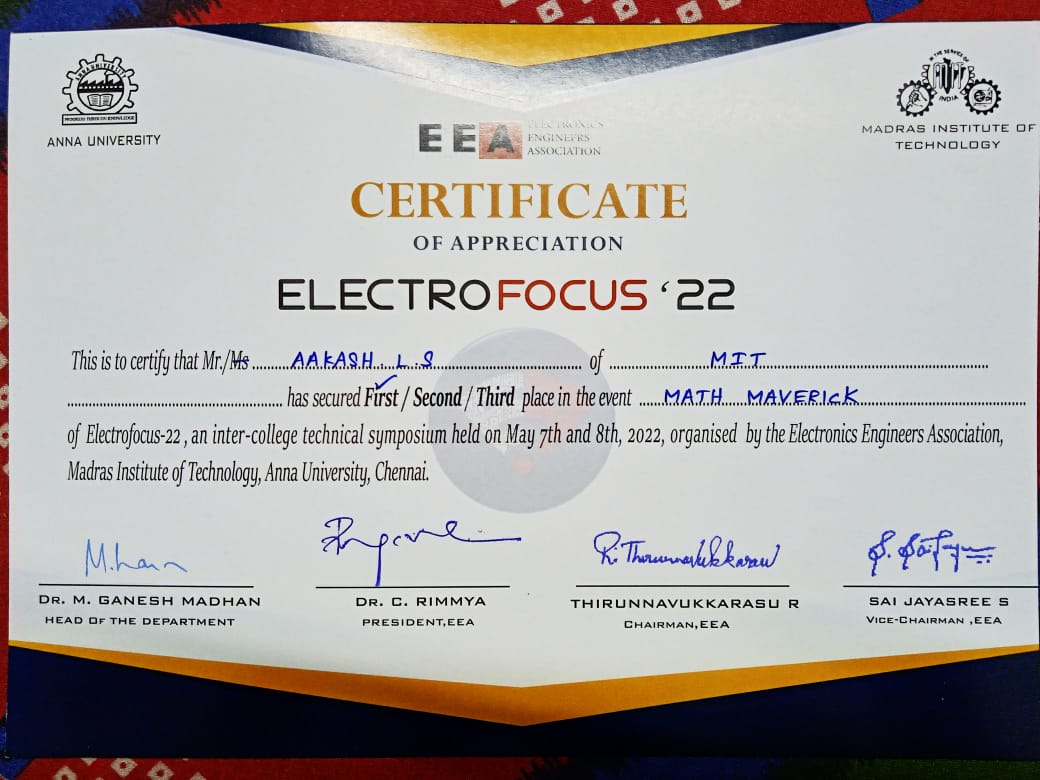 ANNA UNIVERSITY
PROGRESS THROUGH KNOWLEDGE
ANNA UNIVERSITY
IN THE SERVICE OF
MIT
INDIA
MADRAS INSTITUTE OF
TECHNOLOGY
EEA
ELECTRONICS
ENGINEERS
ASSOCIATION
CERTIFICATE
OF APPRECIATION
ELECTROFOCUS ‘22
This is to certify that Mr./Ms AAKASH. L.S of MIT
has secured First / Second / Third place in the event MATH MAVERICK
of Electrofocus-22 , an inter-college technical symposium held on May 7th and 8th, 2022, organised by the Electronics Engineers Association,
Madras Institute of Technology, Anna University, Chennai.
R. Thirunnavukkarasu
DR. M. GANESH MADHAN
HEAD OF THE DEPARTMENT
DR. C. RIMMYA
PRESIDENT,EEA
THIRUNNAVUKKARASU R
CHAIRMAN,EEA
SAI JAYASREE S
VICE-CHAIRMAN ,EEA